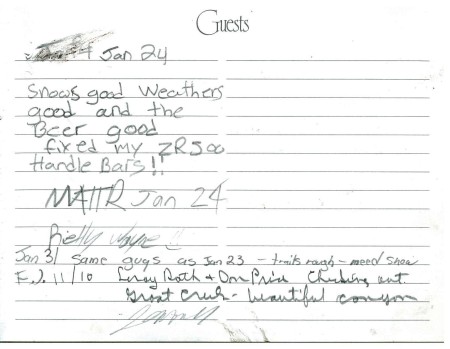 Guests
Jan 24
Snows good Weathers
good and the
Beer good
fixed my ZR500
Handle Bars!!
MATTR Jan 24
Rielly Wayne !!
Jan 31 same guys as Jan 23 - trails rough - need snow
11/10 Leroy Roth + Don Price Checking out
Creek - beautiful canyon